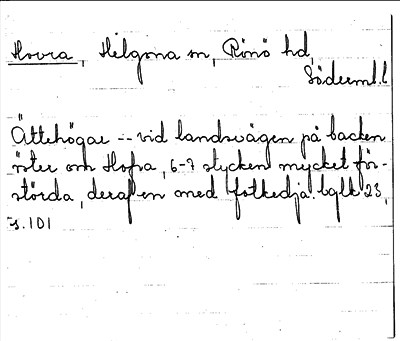 Hovra, Helgona sn, Rönö hd,
Söderml.l.
Ättehögar -- vid landsvägen på backen
öster om Hofra, 6-7 stycken mycket för-
störda, deraf en med fotkedja. bglk 23,
s. 101